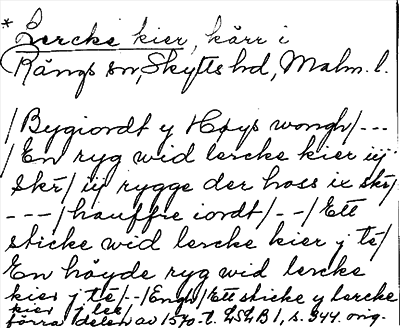 * Lercke kier, kärr i
Rängs sn, Skytts hd, Malm. l.
/Bygiordt y Höys wongh/---
/En ryg wid lercke kier iij
skr/ iij rygge der hoss ix skr/
---/hauffre iordt/--/Ett
sticke wid lercke kier j te/
En höyde ryg wid lercke
kier j te/--/Engh/Ett sticke y lercke
kier j les
förra delen av 1570-t. LSLB1, s. 344. orig.